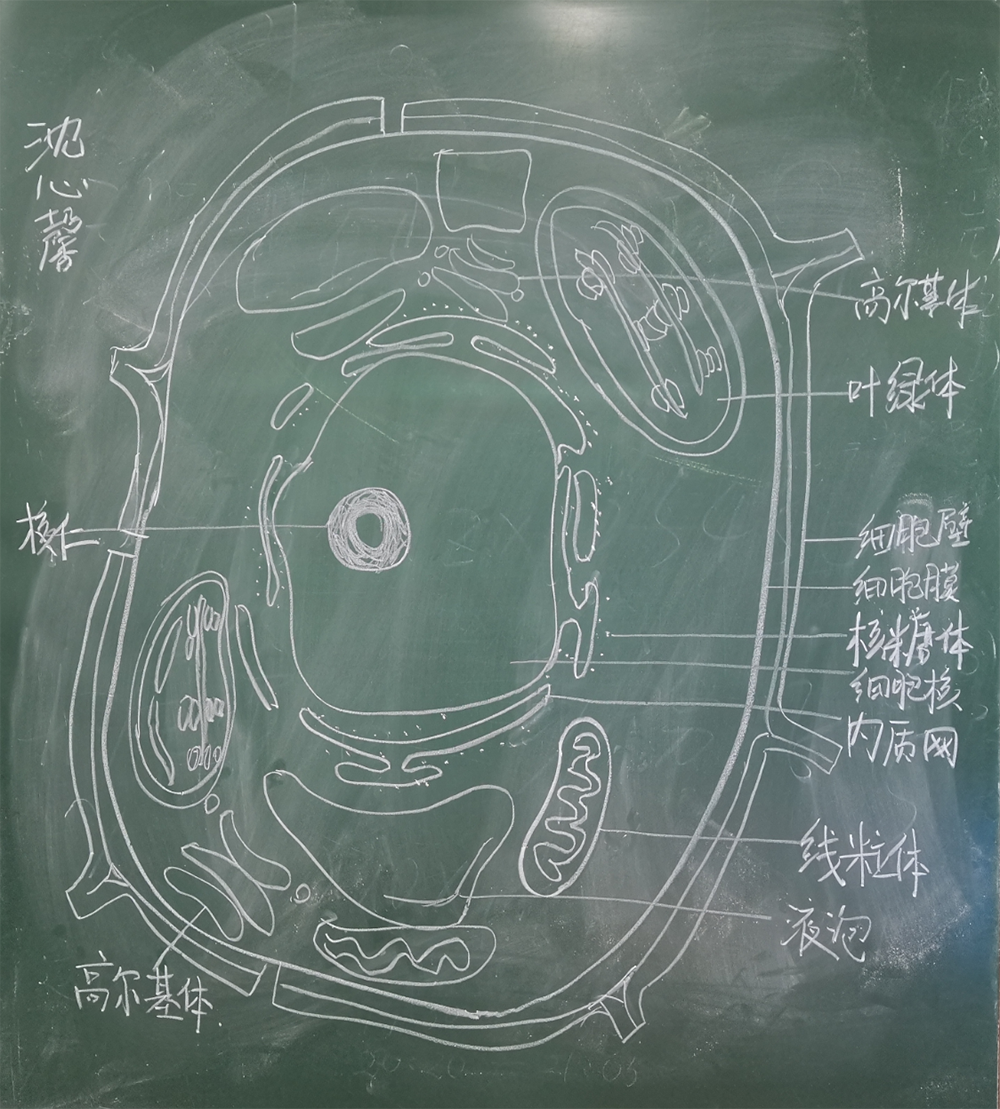 沈心馨
高尔基体
叶绿体
核仁
细胞壁
细胞膜
核糖体
细胞核
内质网
线粒体
液泡
高尔基体